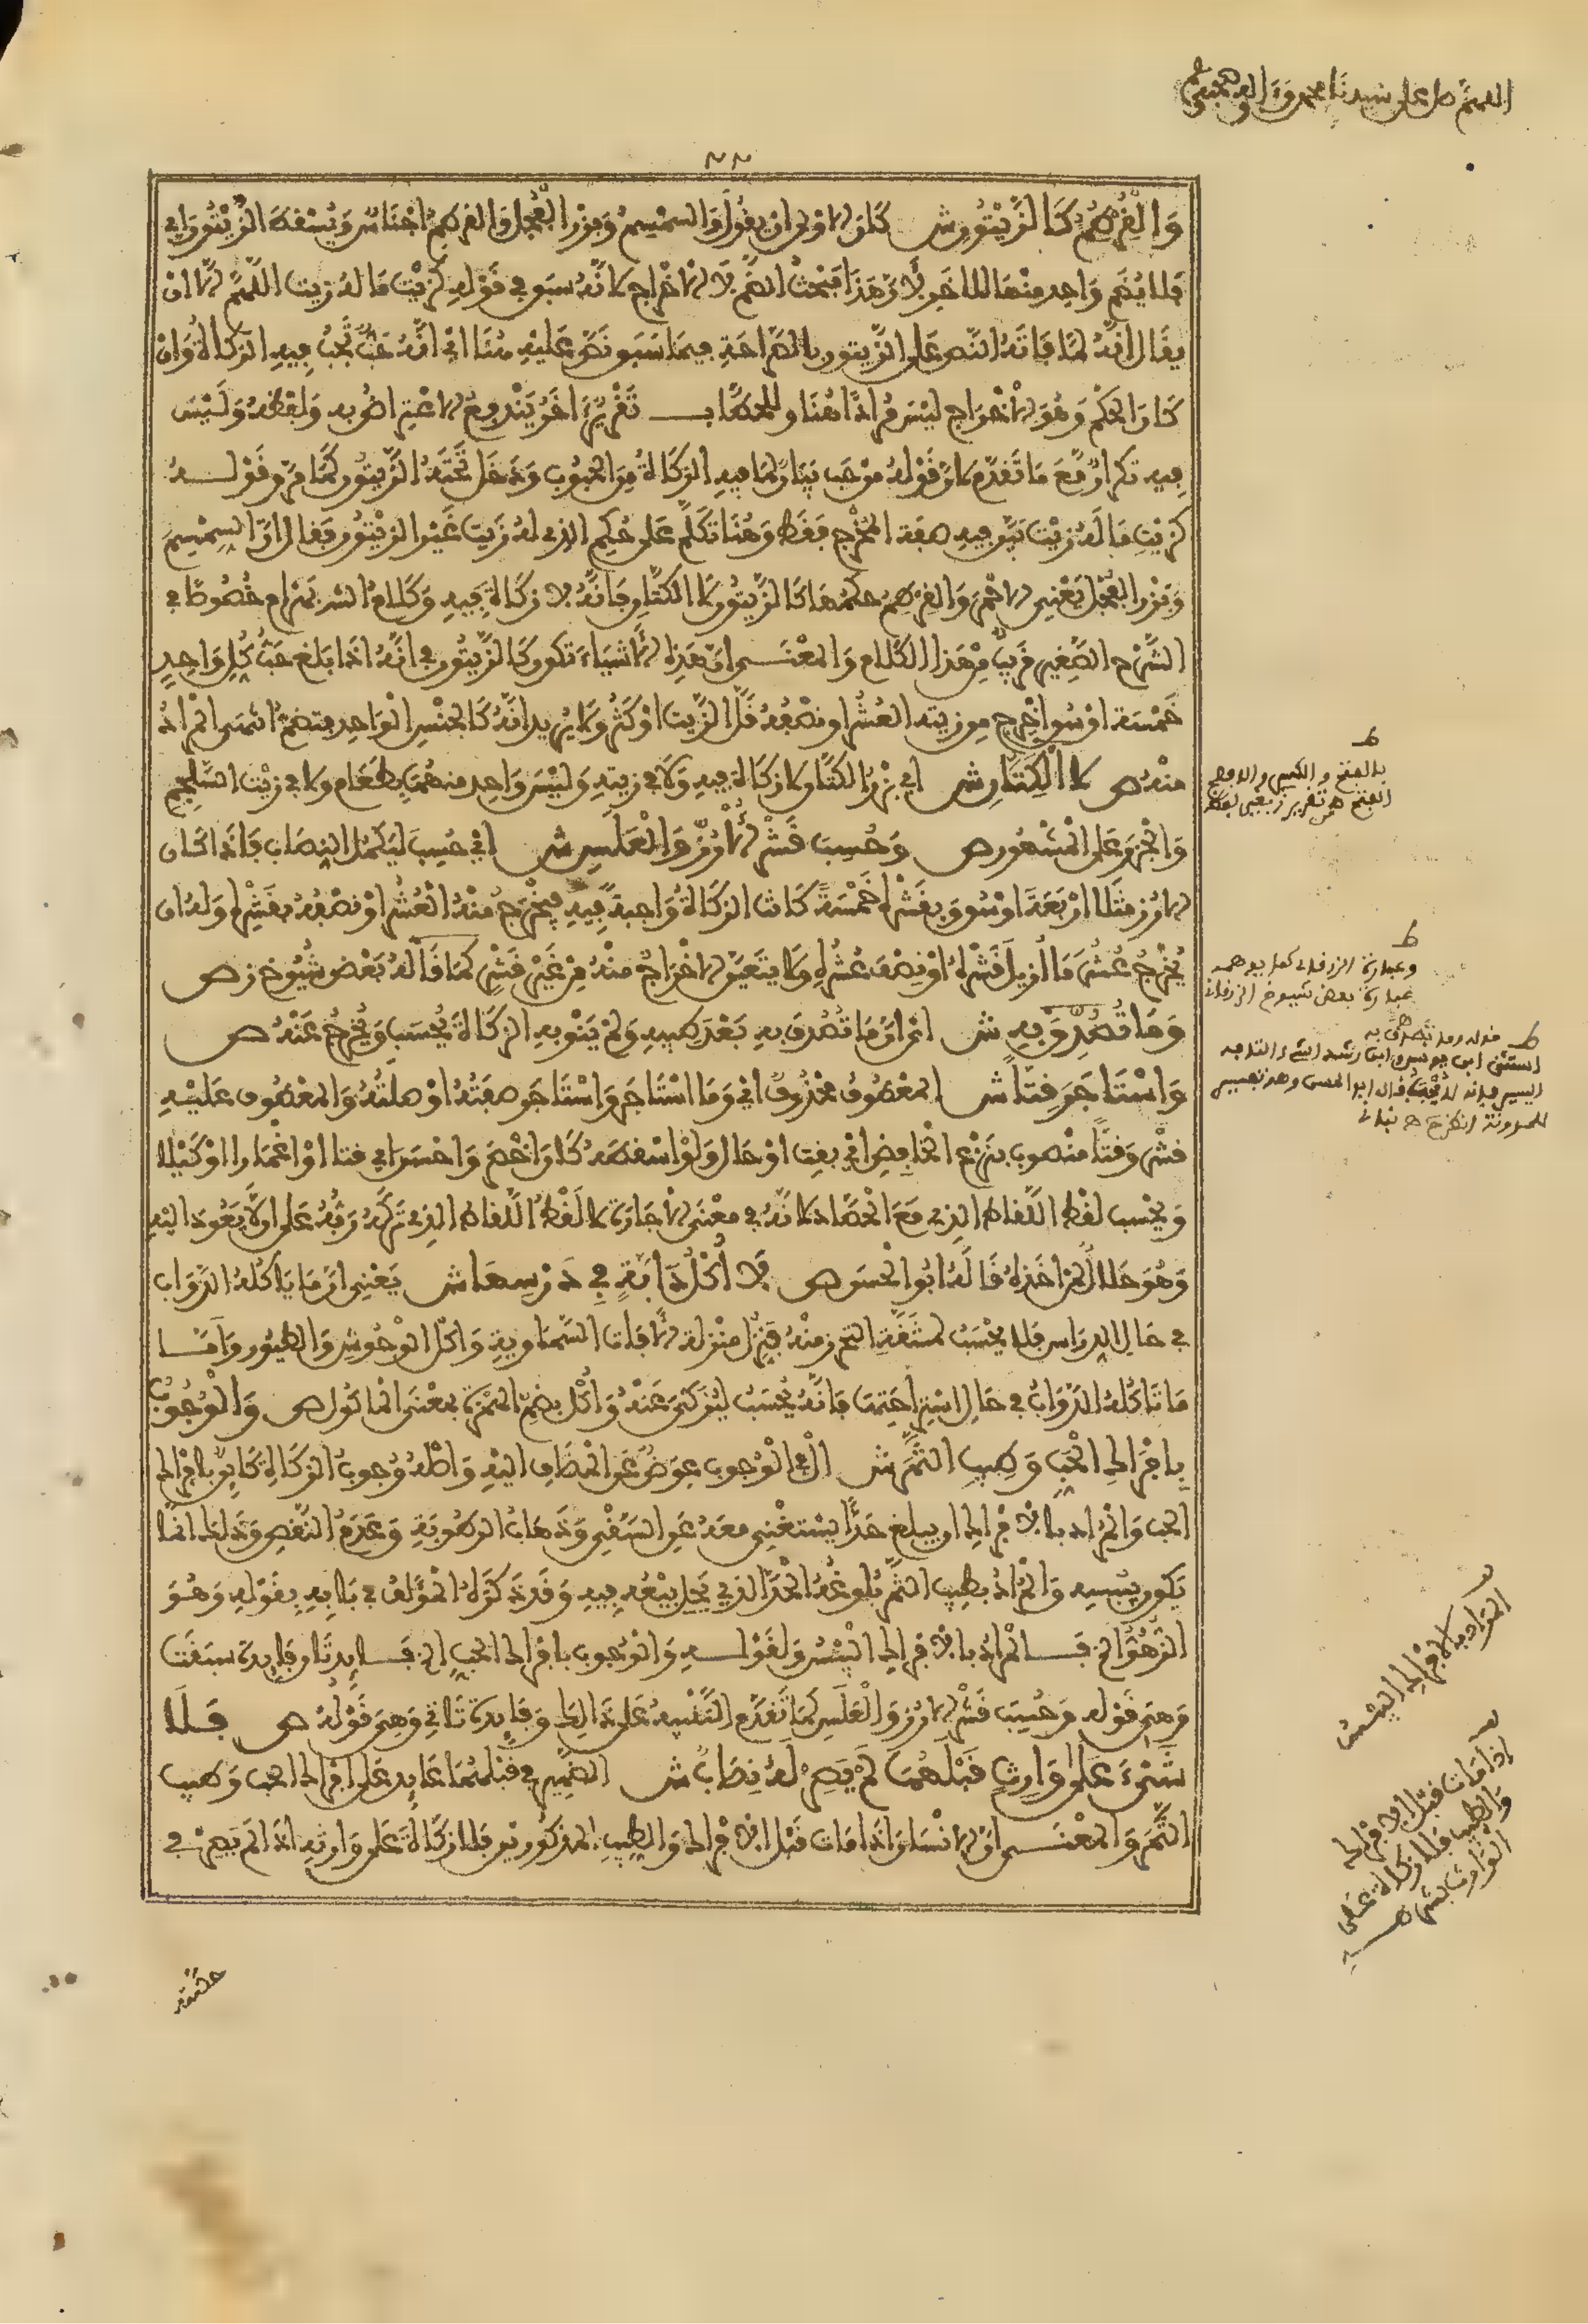 اللهم صل على سيدنا محمد وآله وصحبه
٢٢
وَالْقِرْطِمُ كَالزَّيْتُونِ ش كان الأولى أن يقول والسمسم وبزر الفجل والقرطم أجناس ويسقط الزيتون أي
فلا يضم واحد منها للآخر لأن هذا مبحث الضم لا الإخراج لأنه سبق في قوله كزيت ما له زيت اللهم إلا أن
يقال إنه لما فاته النص على الزيتون بالصراحة فيما سبق نص عليه هنا أي أنه حب تجب فيه الزكاة وإن
كان الحكم وهو الإخراج ليس مرادا هنا وللحطاب تقرير آخر يندفع الاعتراض به ولفظه وليس
فيه تكرار مع ما تقدم لأن قوله من حب بيان لما فيه الزكاة من الحبوب ودخل تحته الزيتون كما مر وقوله
كزيت ما له زيت بين فيه صفة المخرج فقط وهنا تكلم على حكم الذي له زيت غير الزيتون فقال إن السمسم
وبزر الفجل يعني الأحمر والقرطم حكمها كالزيتون لا الكتان فإنه لا زكاة فيه وكلام الش بهرام خصوصا في
الشرح الصغير قريب من هذا الكلام والمعنى أن هذه الأشياء تكون كالزيتون في أنه إذا بلغ حب كل واحد
خمسة أوسق أخرج من زيته العشر أو نصفه قل الزيت أو كثر ولا يريد أنه كالجنس الواحد فتضم انتهى المراد
منه ص لا الْكَتَّانِ ش أي بزر الكتان لا زكاة فيه ولا في زيته وليس واحد منهما بطعام ولا في زيت السلجم
والجزر على المشهور ص وَحُسِبَ قِشْرُ الْأَرُزِّ وَالْعَلَسِ ش أي حسب ليكمل النصاب فإذا كان
الأرز مثلا أربعة أوسق وبقشره خمسة كانت الزكاة واجبة فيه فيخرج منه العشر أو نصفه بقشره وله أن
يخرج عشر ما أزيل قشره أو نصف عشره ولا يتعين الإخراج منه من غير قشر كما قاله بعض شيوخ ز ص
وَمَا تَصَدَّقَ بِهِ ش أي أن ما تصدق به بعد طيبه ولم ينو به الزكاة يحسب ويخرج عنه ص
وَاسْتَأْجَرَ قَتًّا ش المعطوف محذوف أي وما استأجر واستأجر صفته أو صلته والمعطوف عليه
قشر وقتا منصوب بنزع الخافض أي بقت أو حال ولو أسقطه كان أخصر وأحسن أي قتا أو أغمارا أو كيلا
ويحسب لقط اللقاط الذي مع الحصاد لأنه في معنى الإجارة لا لقط اللقاط الذي تركه ربه على أن لا يعود إليه
وهو حلال لمن أخذه قاله أبو الحسن ص لَا أَكْلُ دَابَّةٍ فِي دَرْسِهَا ش يعني أن ما يأكله الدواب
في حال الدراس فلا يحسب لمشقة التحرز منه فينزل منزلة الآفات السماوية وأكل الوحوش والطيور وأما
ما تأكله الدواب في حال استراحتها فإنه يحسب ليزكى عنه وأكل بضم الهمزة بمعنى المأكول ص وَالْوُجُوبُ
بِإِفْرَاكِ الْحَبِّ وَطِيبِ الثَّمَرِ ش أل في الوجوب عوض عن المضاف إليه وأصله وجوب الزكاة كائن بإفراك
الحب والمراد بالإفراك أن يبلغ حدا يستغني معه عن السقي وذهاب الرطوبة وعدم النقص وذلك إنما
يكون بيبسه والمراد بطيب الثمر بلوغه الحد الذي يحل بيعه فيه وقد ذكره المؤلف في بابه بقوله وهو
الزهو الخ فالمراد بالإفراك اليبس ولقوله والوجوب بإفراك الحب الخ فايدتان فايدة سبقت
وهي قوله وحسب قشر الأرز والعلس كما تقدم التنبيه على ذلك وفايدة تاتي وهي قوله ص فَلَا
شَيْءَ عَلَى وَارِثٍ قَبْلَهُمَا لَمْ يَصِرْ لَهُ نِصَابٌ ش الضمير في قبلهما عايد على إفراك الحب وطيب
الثمر والمعنى أن الإنسان إذا مات قبل الإفراك والطيب المذكورين فلا زكاة على وارثه إذا لم يصر في
حصته
ط
بالفتح والكسر
ط
وعبارة الزرقاني كما يوهمه
عبارة بعض شيوخ الزرقاني
ط قوله وما تصدق به
استثنى ابن يونس وابن رشد الشيء التافه
المراد بالإفراك اليبس
إذا مات قبل الإفراك
والطيب فلا زكاة على
الوارث بشرطه